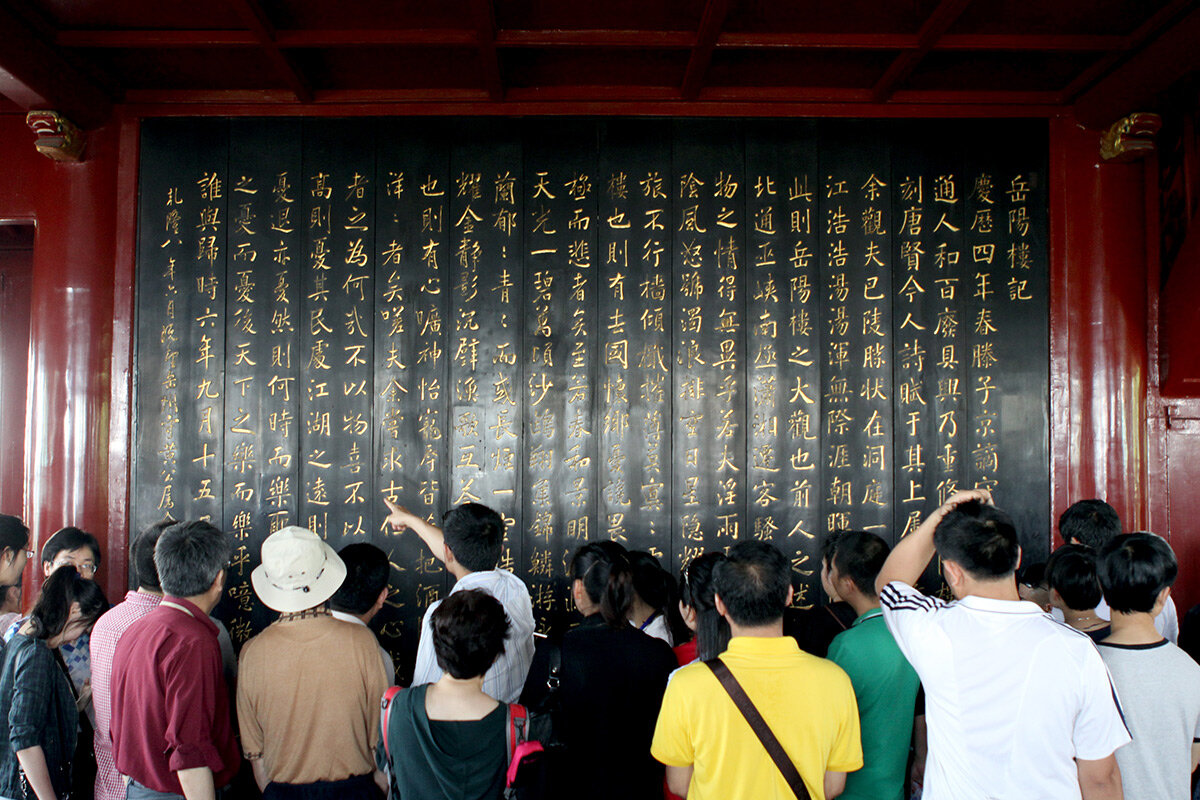 岳陽樓記
慶歷四年春滕子京謫守
通人和百廢具興乃重修
刻唐賢今人詩賦于其上屬
余觀夫巴陵勝狀在洞庭一
江浩浩湯湯渾無際涯朝暉
此則岳陽樓之大觀也前人之述
北通巫峽南極瀟湘遷客騷
物之情得無異乎若夫淫雨
陰風怒號濁浪排空日星隱耀
旅不行檣傾楫摧薄暮冥:
樓也則有去國懷鄉憂讒畏
極而悲者矣至若春和景明
天光一碧萬頃沙鷗翔集錦鱗游
蘭郁:青:而或長煙一空皓
耀金靜影沉璧漁歌互答
也則有心曠神怡寵辱皆 把酒
洋:者矣嗟夫余嘗求古仁人之心
者之為何哉不以物喜不以
高則憂其民處江湖之遠則
憂退亦憂然則何時而樂耶
之憂而憂後天下之樂而樂乎噫微
誰與歸時六年九月十五
乾隆八年六月